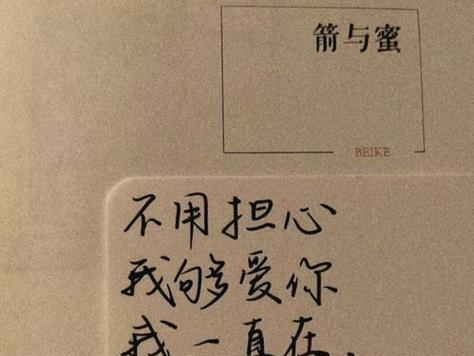 箭与蜜
BEIKE
不用担心
我够爱你
我一直在.